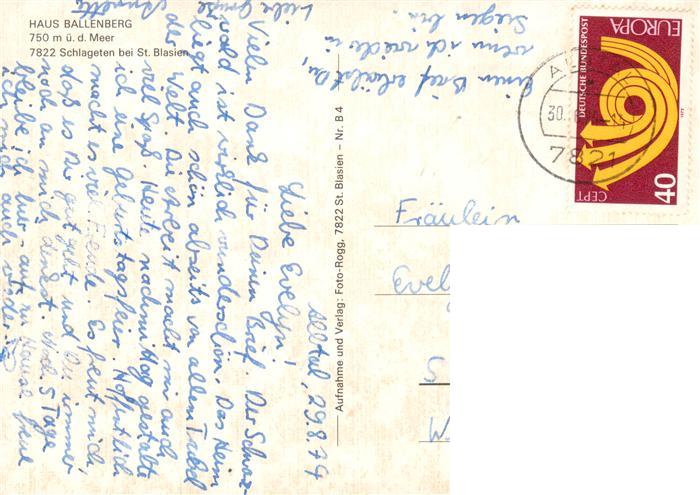 HAUS BALLENBERG
750 m ü. d. Meer
7822 Schlageten bei St. Blasien
Albtal, 29.8.74
Liebe Evelyn!
Vielen Dank für Deinen Brief. Der Schwarz-
wald ist wirklich wunderschön. Das Heim
liegt auch schön abseits von allem Trubel
der Welt. Die Arbeit macht mir auch
viel Spaß. Heute nachmittag gestalte
ich eine Geburtstagsfeier. Hoffentlich
macht es viel Freude. Es freut mich,
daß es Dir gut geht und Du immer
noch an mich denkst. Noch 5 Tage
bleibe ich hier - auf zu Hause freue
ich mich auch wieder.
Einen Brief erhältst Du,
wenn ich wieder in
Siegen bin!
Liebe Grüße
Annette
Aufnahme und Verlag: Foto-Rogg, 7822 St. Blasien – Nr. B 4
EUROPA
DEUTSCHE BUNDESPOST
CEPT
40
1973
30.
7821
Fräulein
Evel
S
W